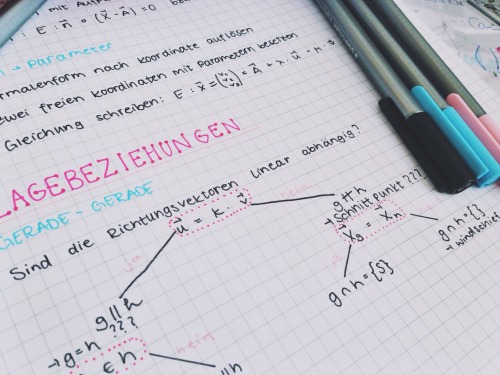 mit
: E: n⃗ ∘ (X⃗ - A⃗) = 0
→ Parameter
rmalenform nach Koordinate auflösen
zwei freien Koordinaten mit Parametern besetzen
Gleichung schreiben: E: X⃗ =
LAGEBEZIEHUNGEN
GERADE - GERADE
Sind die Richtungsvektoren linear abhängig?
u⃗ = k · v⃗
nein
ja
g ∦ h
→ Schnittpunkt???
X⃗g = X⃗h
g ∩ h = { }
→ windschief
g ∩ h = {S}
g || h
???
→ g = h
∈ h
nein
|| h